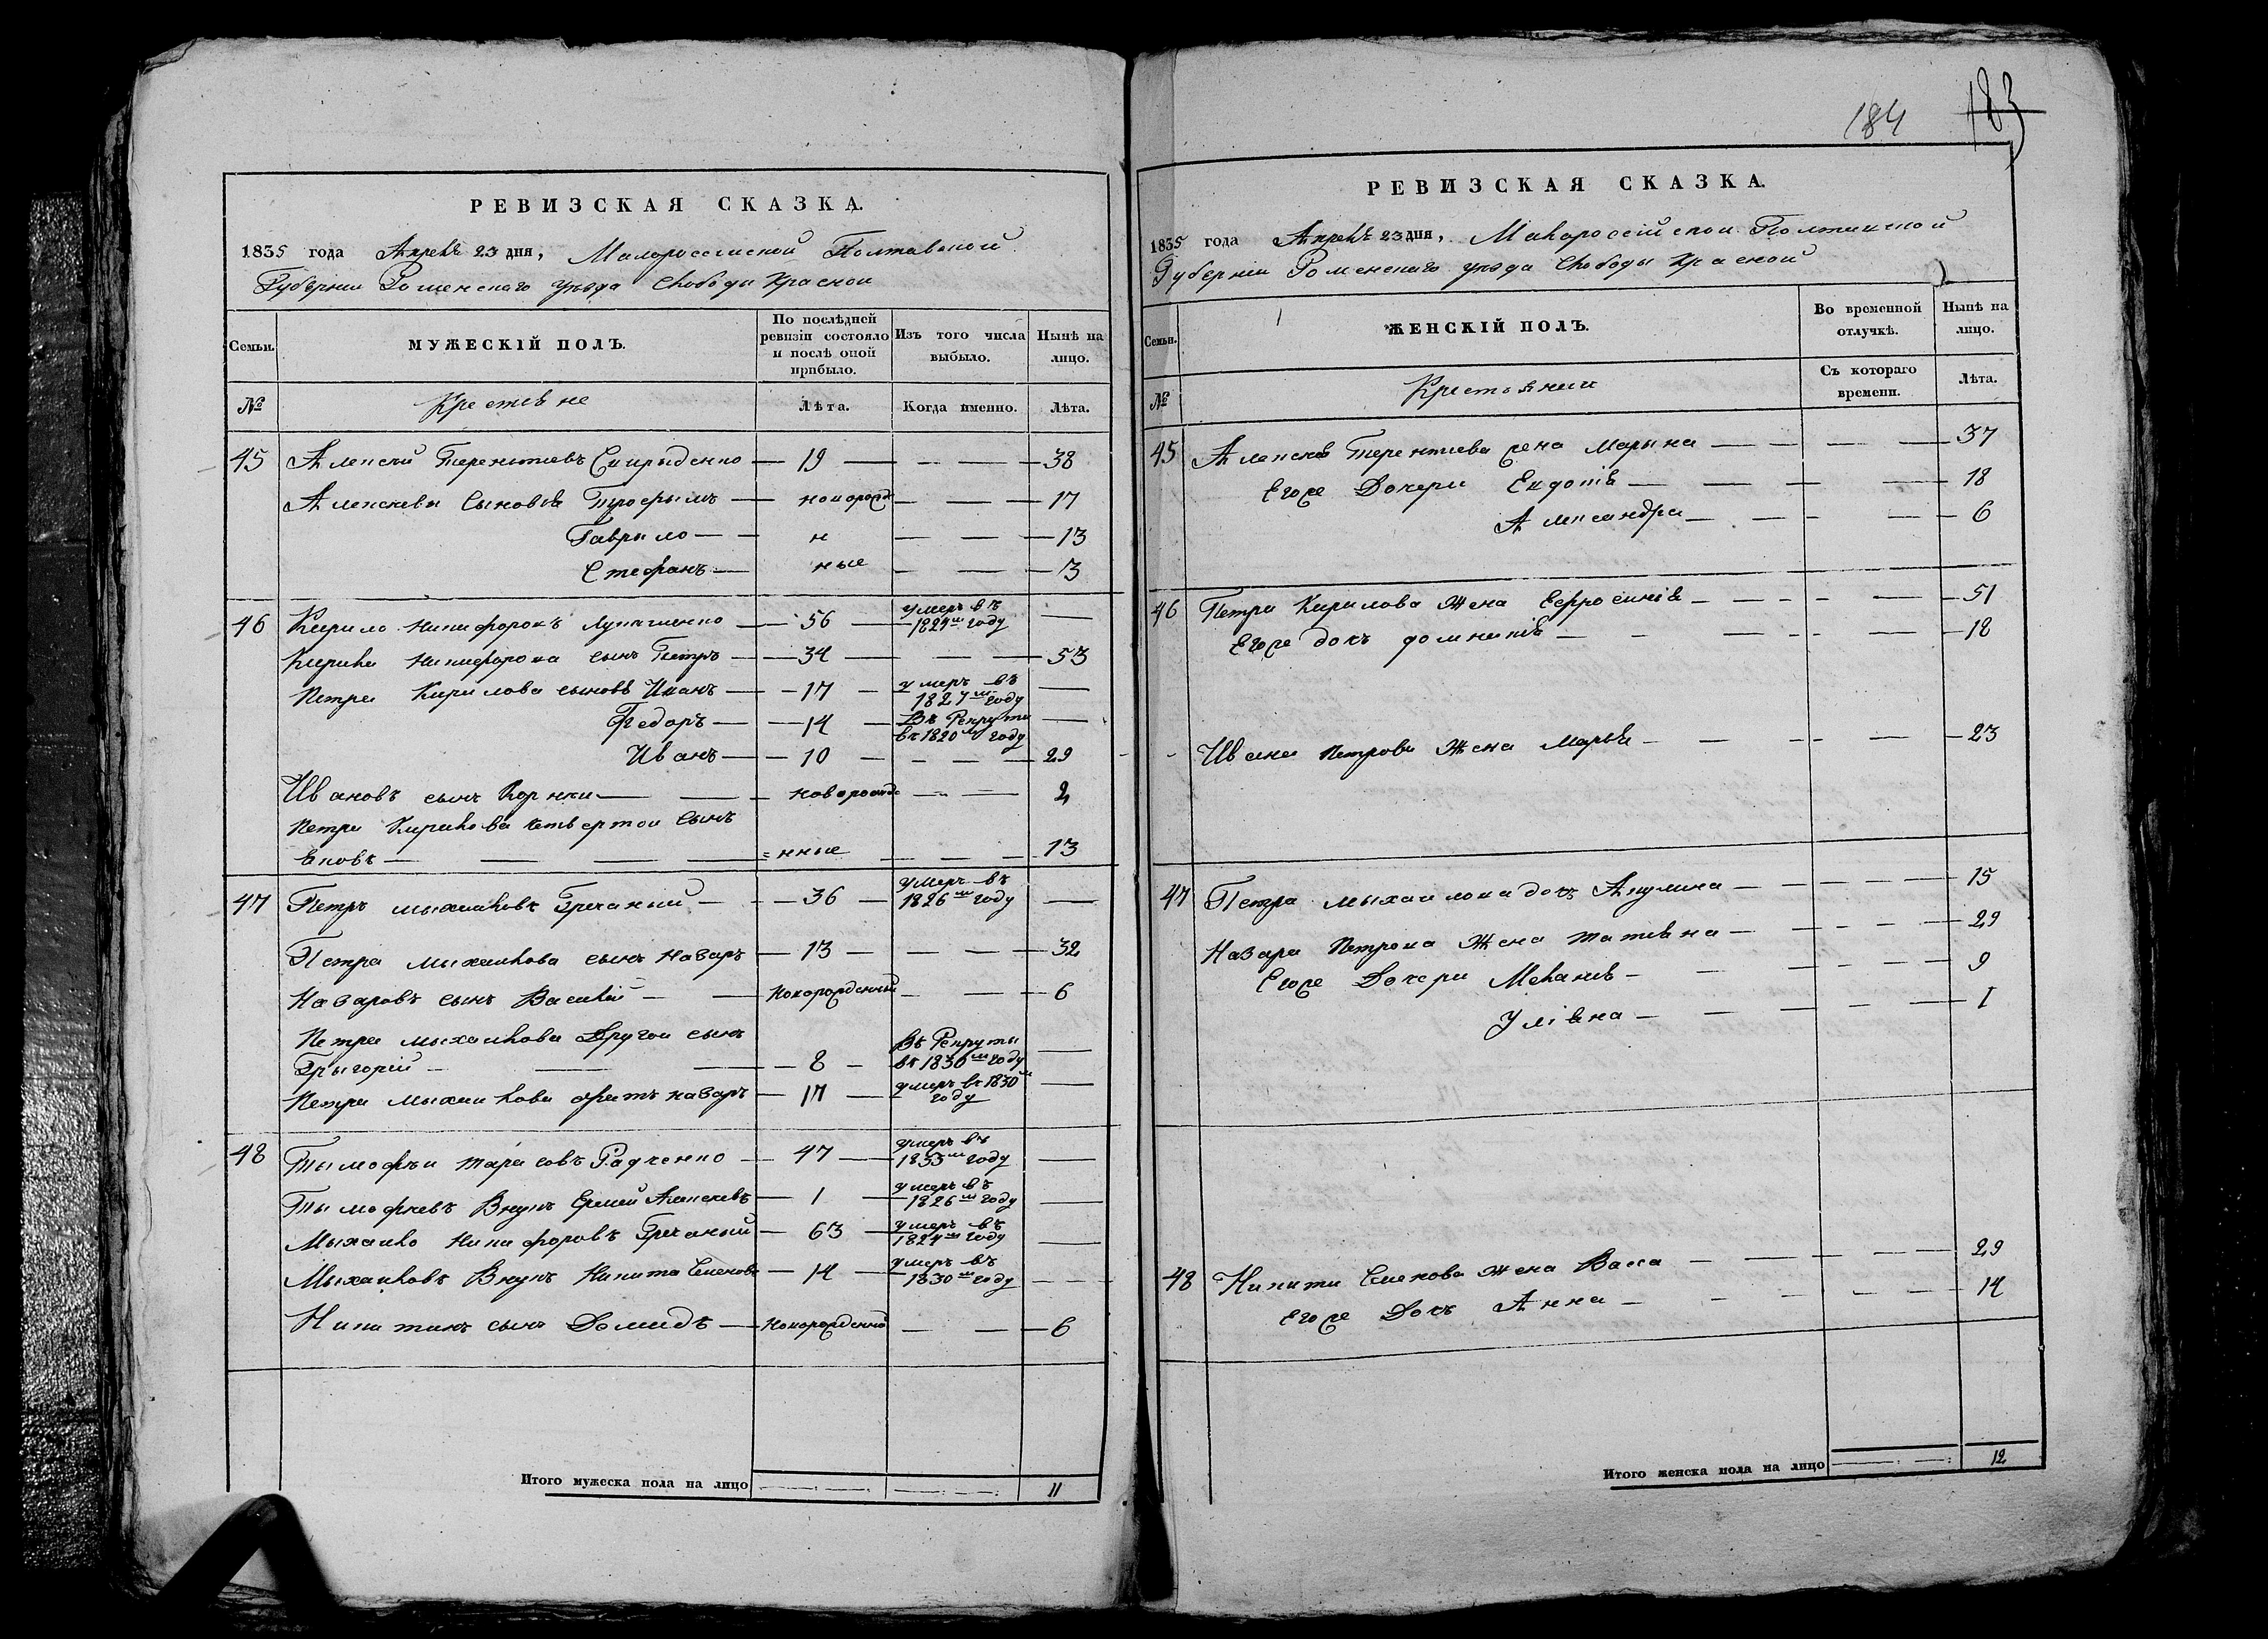 РЕВИЗСКАЯ СКАЗКА.
1835 года Апрель 23 дня, Малороссийской Полтавской
Губернии Роменскаго уезда Слободы Красной
Семьи.
МУЖЕСКІЙ ПОЛЪ.
По послѣдней ревизіи состояло и послѣ оной прибыло.
Изъ того числа выбыло.
Нынѣ на лицо.
№
Крестьяне
Лѣта.
Когда именно.
Лѣта.
45 Алексей Терентиевъ Спирыденко — 19 — — — 38
Алексеевы Сыновья Трофымъ — новорожде — — 17
Гаврыло — н — — 13
Стефанъ — ные — — 3
46 Кирило Никифоровъ Лукашенко — 56 — умеръ въ 1824м году —
Кирила Никифорова сынъ Петръ — 34 — — — 53
Петра Кирилова сыновья Иванъ — 17 — умеръ въ 1827м году —
Федоръ — 14 — Въ Рекруты въ 1820м году —
Иванъ — 10 — — — 29
Ивановъ сынъ Корнеи — новорожде — — 2
Петра Кирилова четвертои Сынъ
Яковъ — =нные — — 13
47 Петръ Мыхайловъ Гречаный — 36 — умеръ въ 1826м году —
Петра Мыхайлова сынъ Назаръ — 13 — — — 32
Назаровъ сынъ Василей — Новорожденный — — 6
Петра Мыхайлова Другои сынъ
Грыгорій — 8 — Въ Рекруты въ 1830м году —
Петра Мыхайлова братъ Назаръ — 17 — умеръ въ 1830м году —
48 Тымофеи Тарасовъ Радченко — 47 — умеръ въ 1833м году —
Тымофеевъ Внукъ Ермей Алексеевъ — 1 — умеръ въ 1826м году —
Мыхайло Никифоровъ Гречаный — 63 — умеръ въ 1824м году —
Мыхайловъ Внукъ Никита Семеновъ — 14 — умеръ въ 1830м году — —
Никитинъ сынъ Домидъ — Новорожденный — — 6
Итого мужеска пола на лицо 11
184 183
РЕВИЗСКАЯ СКАЗКА.
1835 года Апрель 23 дня, Малороссійской Полтавской
Губерніи Роменскаго уезда Слободы Красной
Семьи.
ЖЕНСКІЙ ПОЛЪ.
Во временной отлучкѣ.
Нынѣ на лицо.
№
Крестьянки
Съ котораго времени.
Лѣта.
45 Алексея Терентиева жена Марына — — — — 37
Егоже Дочери Евдокія — — — — 18
Александра — — — — 6
46 Петра Кирилова Жена Ефросинія — — — — 51
Егоже дочь Домникія — — — — 18
Ивана Петрова Жена Марья — — — — 23
47 Петра Мыхайлова дочь Акулина — — — — 15
Назара Петрова Жена Татіяна — — — — 29
Егоже Дочери Меланія — — — — 9
Уліяна — — — — 1
48 Никиты Семенова жена Васса — — — — 29
Егоже Дочь Анна — — — — 14
Итого женска пола на лицо 12